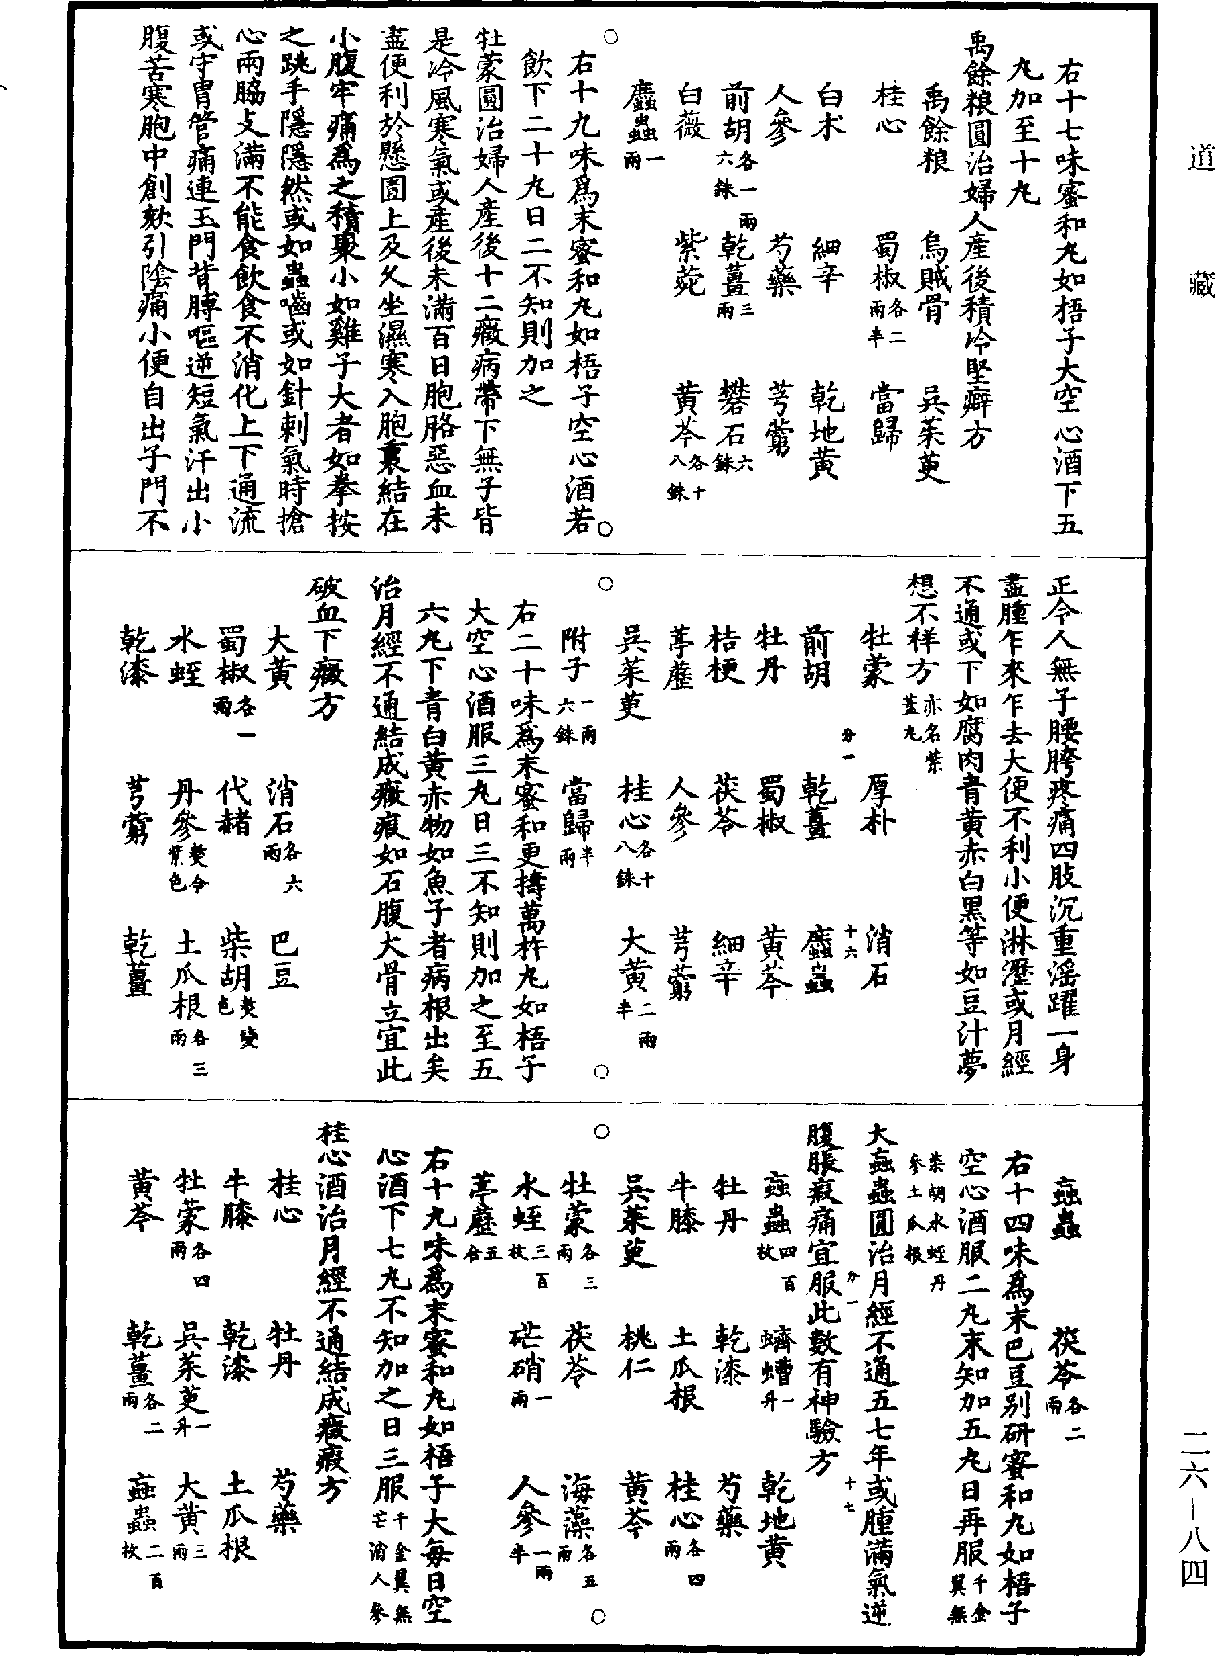 道藏
右十七味蜜和丸如梧子大空心酒下五
丸加至十丸
禹餘粮圓治婦人產後積冷堅癖方
禹餘粮 烏賊骨 吳茱萸
桂心 蜀椒各二兩半 當歸
白术 細辛 乾地黃
人參 芍藥 芎藭
前胡各一兩六銖 乾薑三兩 礬石六銖
白薇 紫菀 黃芩各十八銖
䗪蟲一兩
右十九味爲末蜜和丸如梧子空心酒若
飲下二十丸日二不知則加之
牡蒙圓治婦人產後十二癥病帶下無子皆
是冷風寒氣或產後未滿百日胞胳惡血未
盡便利於懸圊上及久坐濕寒入胞裏結在
小腹牢痛爲之積聚小如雞子大者如拳按
之跳手隱隱然或如蟲嚙或如針刺氣時搶
心兩脇支滿不能食飲食不消化上下通流
或守胃管痛連玉門背膊嘔逆短氣汗出小
腹苦寒胞中創欬引陰痛小便自出子門不
正令人無子腰胯疼痛四肢沉重淫躍一身
盡腫乍來乍去大便不利小便淋瀝或月經
不通或下如腐肉青黃赤白黑等如豆汁夢
想不祥方亦名紫蓋丸
牡蒙 厚朴 消石
分一 十六
前胡 乾薑 䗪蟲
牡丹 蜀椒 黃芩
桔梗 茯苓 細辛
葶藶 人參 芎藭
吳茱萸 桂心各十八銖 大黃二兩半
附子一兩六銖 當歸半兩
右二十味爲末蜜和更擣萬杵丸如梧子
大空心酒服三丸日三不知則加之至五
六丸下青白黃赤物如魚子者病根出矣
治月經不通結成癥瘕如石腹大骨立宜此
破血下癥方
大黃 消石各六兩 巴豆
蜀椒各一兩 代赭 柴胡熬變色
水蛭 丹參熬令紫色 土瓜根各三兩
乾漆 芎藭 乾薑
䖟蟲 茯苓各二兩
右十四味爲末巴豆別研蜜和丸如梧子
空心酒服二丸末知加五丸日再服千金翼無
柴胡水蛭丹參土瓜根
大䖟蟲圓治月經不通五七年或腫滿氣逆
分一 十七
腹脹瘕痛宜服此數有神驗方
䖟蟲四百枚 蠐螬一升 乾地黃
牡丹 乾漆 芍藥
牛膝 土瓜根 桂心各四兩
吳茱萸 桃仁 黃芩
牡蒙各三兩 茯苓 海藻各五兩
水蛭三百枚 芒硝一兩 人參一兩半
葶藶五合
右十九味爲末蜜和丸如梧子大每日空
心酒下七丸不知加之日三服千金翼無芒消人參
桂心酒治月經不通結成癥瘕方
桂心 牡丹 芍藥
牛膝 乾漆 土瓜根
牡蒙各四兩 吳茱萸一升 大黃三兩
黃芩 乾薑各二兩 䖟蟲二百枚
二六—八四